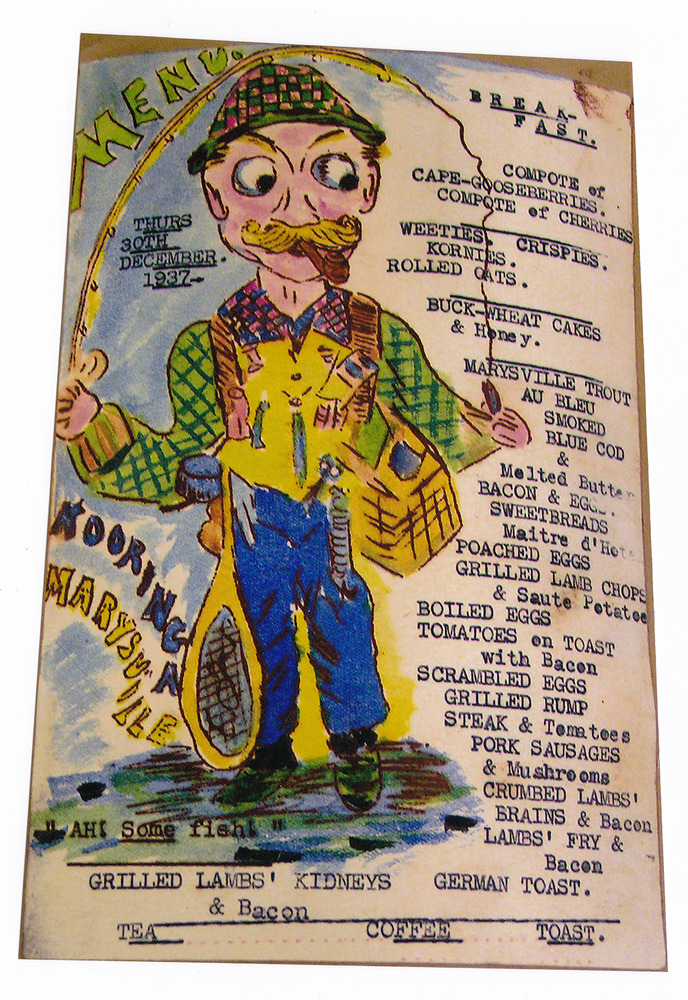 MENU.
THURS
30TH
DECEMBER.
1937-
BREAK-
FAST.
COMPOTE of
CAPE-GOOSEBERRIES.
COMPOTE of CHERRIES
WEETIES. CRISPIES.
KORNIES.
ROLLED OATS.
BUCK-WHEAT CAKES
& Honey.
MARYSVILLE TROUT
AU BLEU
SMOKED
BLUE COD
&
Melted Butter
BACON & EGGS.
SWEETBREADS
Maitre
POACHED EGGS
GRILLED LAMB CHOPS
& Saute Potatoe
BOILED EGGS
TOMATOES on TOAST
with Bacon
SCRAMBLED EGGS
GRILLED RUMP
STEAK & Tomatoes
PORK SAUSAGES
& Mushrooms
CRUMBED LAMBS'
BRAINS & Bacon
LAMBS' FRY &
Bacon
KOORINGA
MARYSVILLE
" AH! Some fish! "
GRILLED LAMBS' KIDNEYS GERMAN TOAST.
& Bacon
TEA COFFEE TOAST.